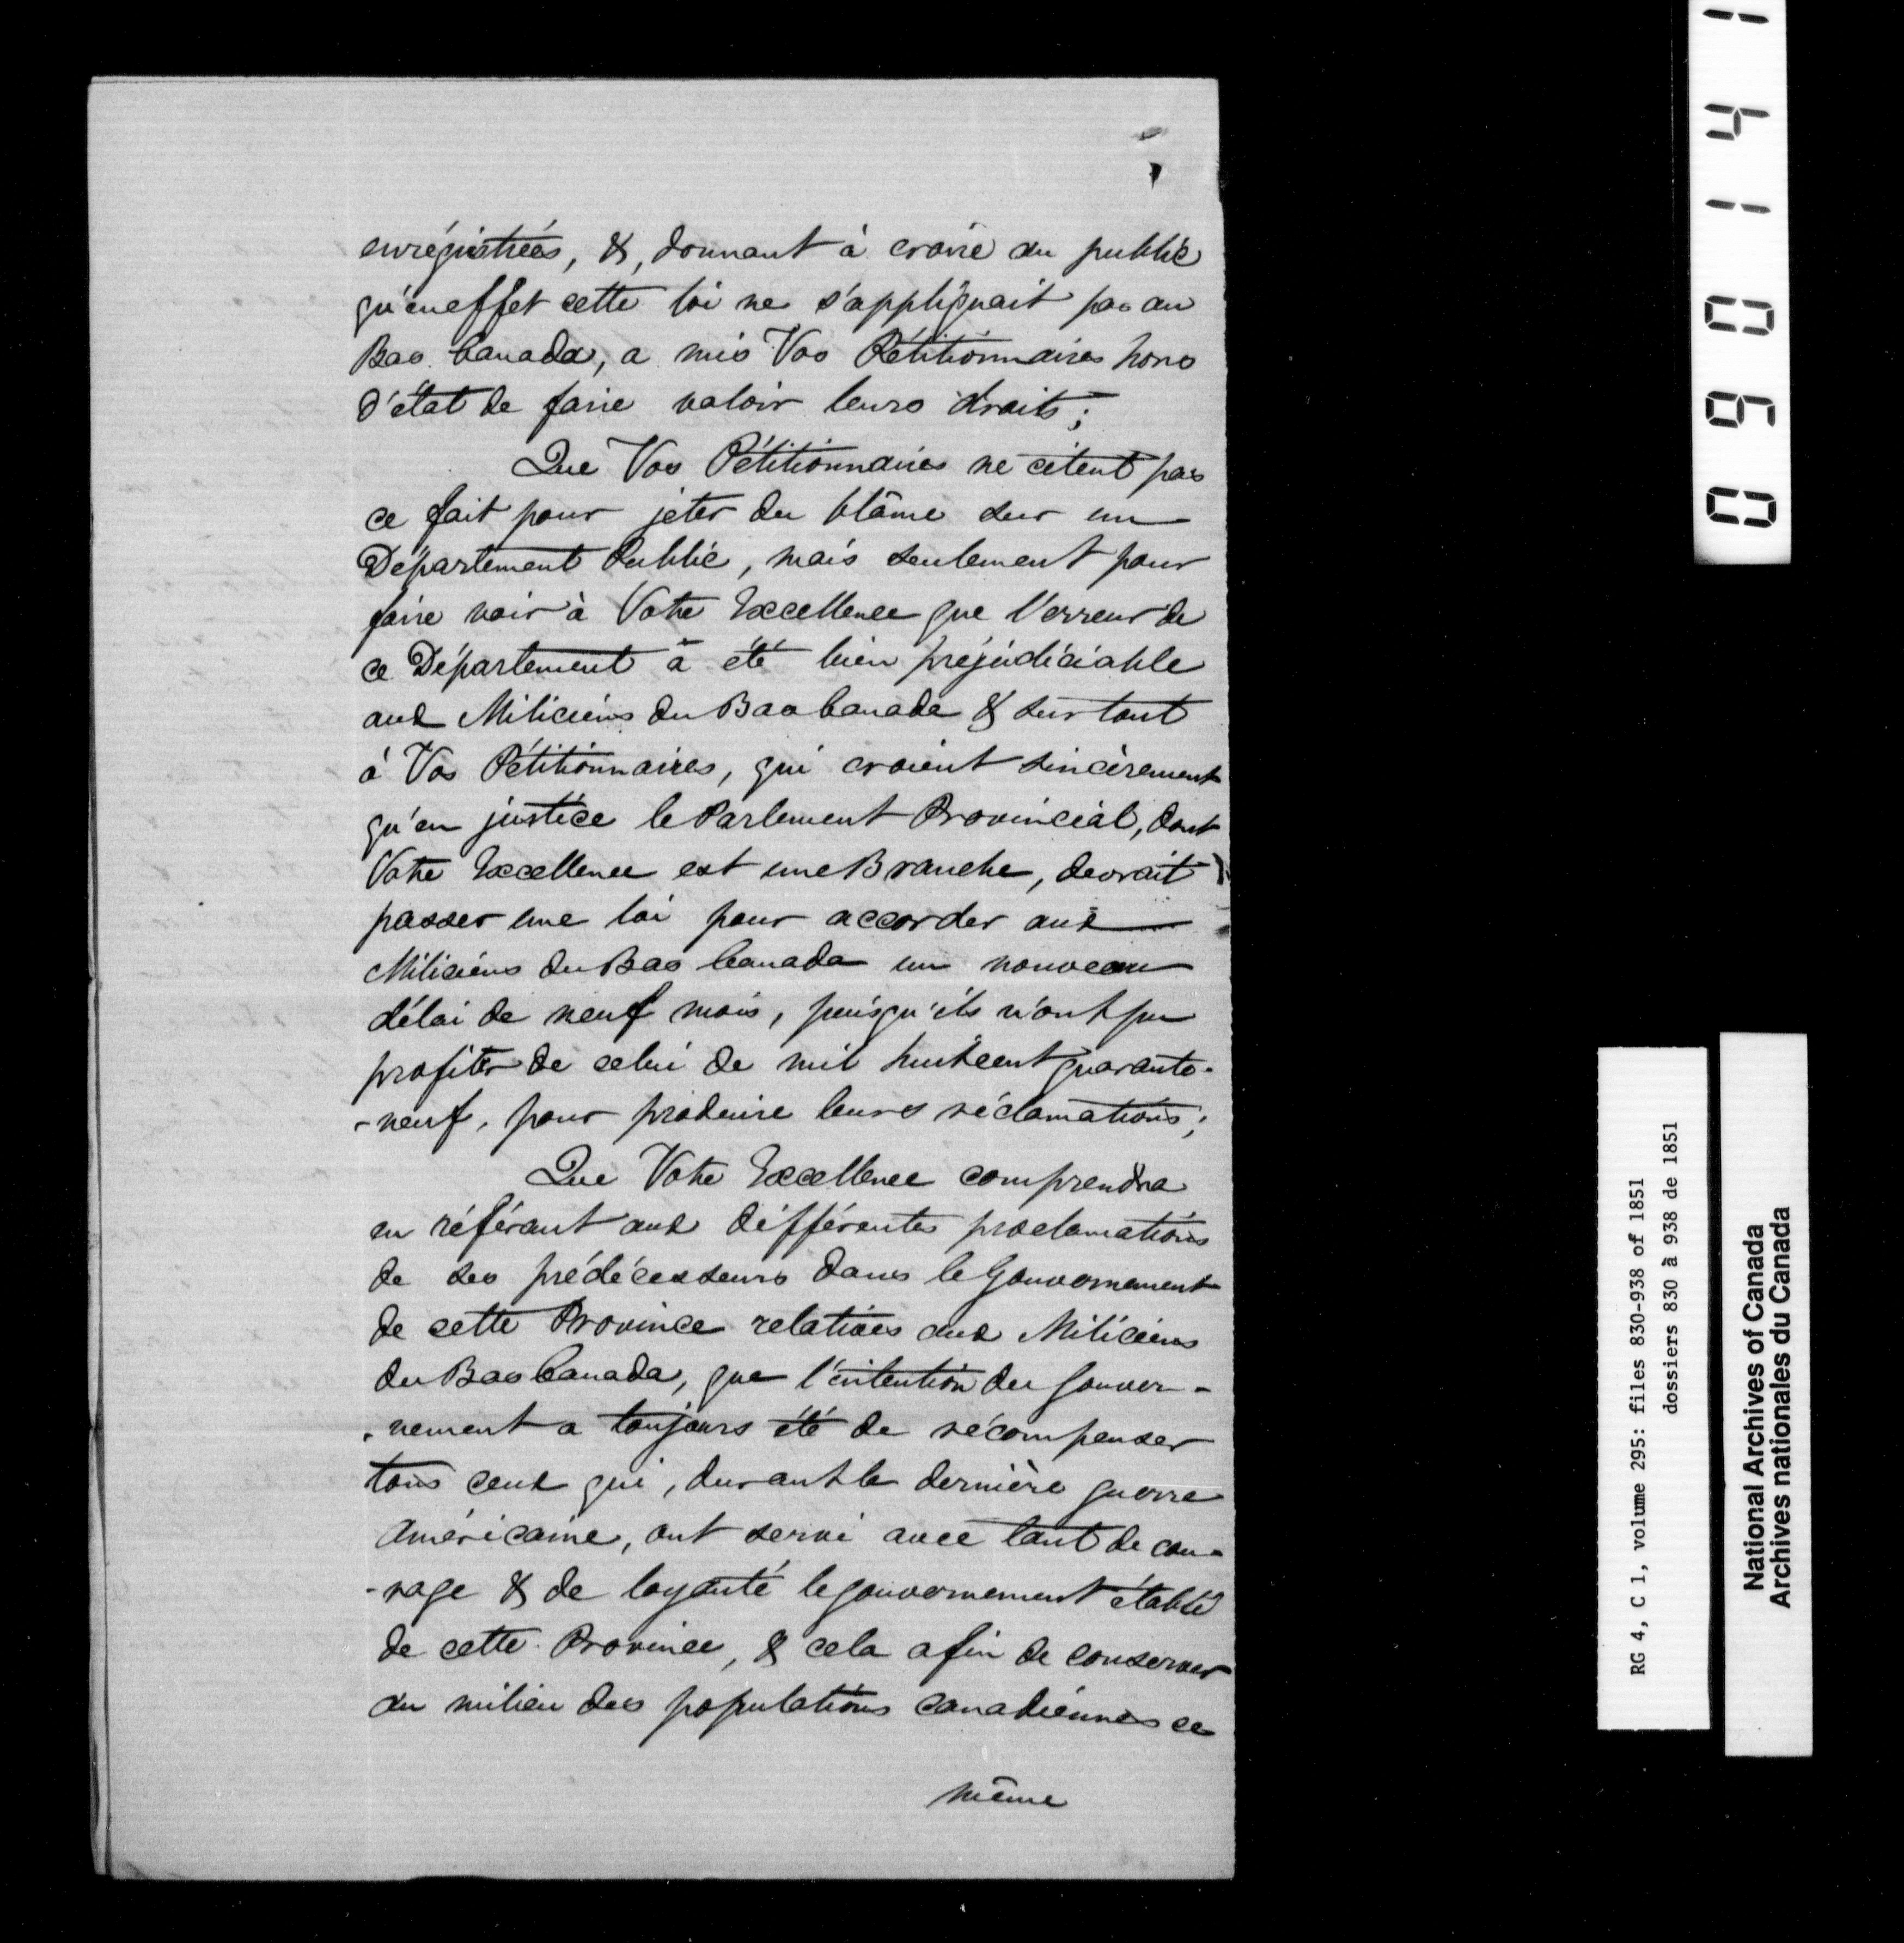 enrégistrées, &, donnant à croire au public
qu'en effet cette loi ne s'appliquait pas au
Bas Canada, a mis Vos Pétitionnaires hors
d'état de faire valoir leurs droits;
Que Vos Pétitionnaires ne citent pas
ce fait pour jeter du blâme sur un
Département Public, mais seulement pour
faire voir à Votre Excellence que l'erreur de
ce Département a été bien préjudiciable
aux Miliciens du Bas Canada & surtout
à Vos Pétitionnaires, qui croient sincèrement
qu'en justice le Parlement Provincial, dont
Votre Excellence est une Branche, devrait
passer une loi pour accorder aux
Miliciens du Bas Canada un nouveau
délai de neuf mois, puisqu'ils n'ont pu
profiter de celui de mil huit cent quarante-
-neuf, pour produire leurs réclamations;
Que Votre Excellence comprendra
en référant aux différentes proclamations
de ses prédécesseurs dans le Gouvernement
de cette Province relatives aux Miliciens
du Bas Canada, que l'intention du Gouver-
-nement a toujours été de récompenser
tous ceux qui, durant la dernière guerre
Américaine, ont servi avec tant de cou-
-rage & de loyauté le gouvernement établi
de cette Province, & cela afin de conserver
au milieu des populations canadiennes ce
même
090141
RG 4, C 1, volume 295: files 830-938 of 1851
dossiers 830 à 938 de 1851
National Archives of Canada
Archives nationales du Canada